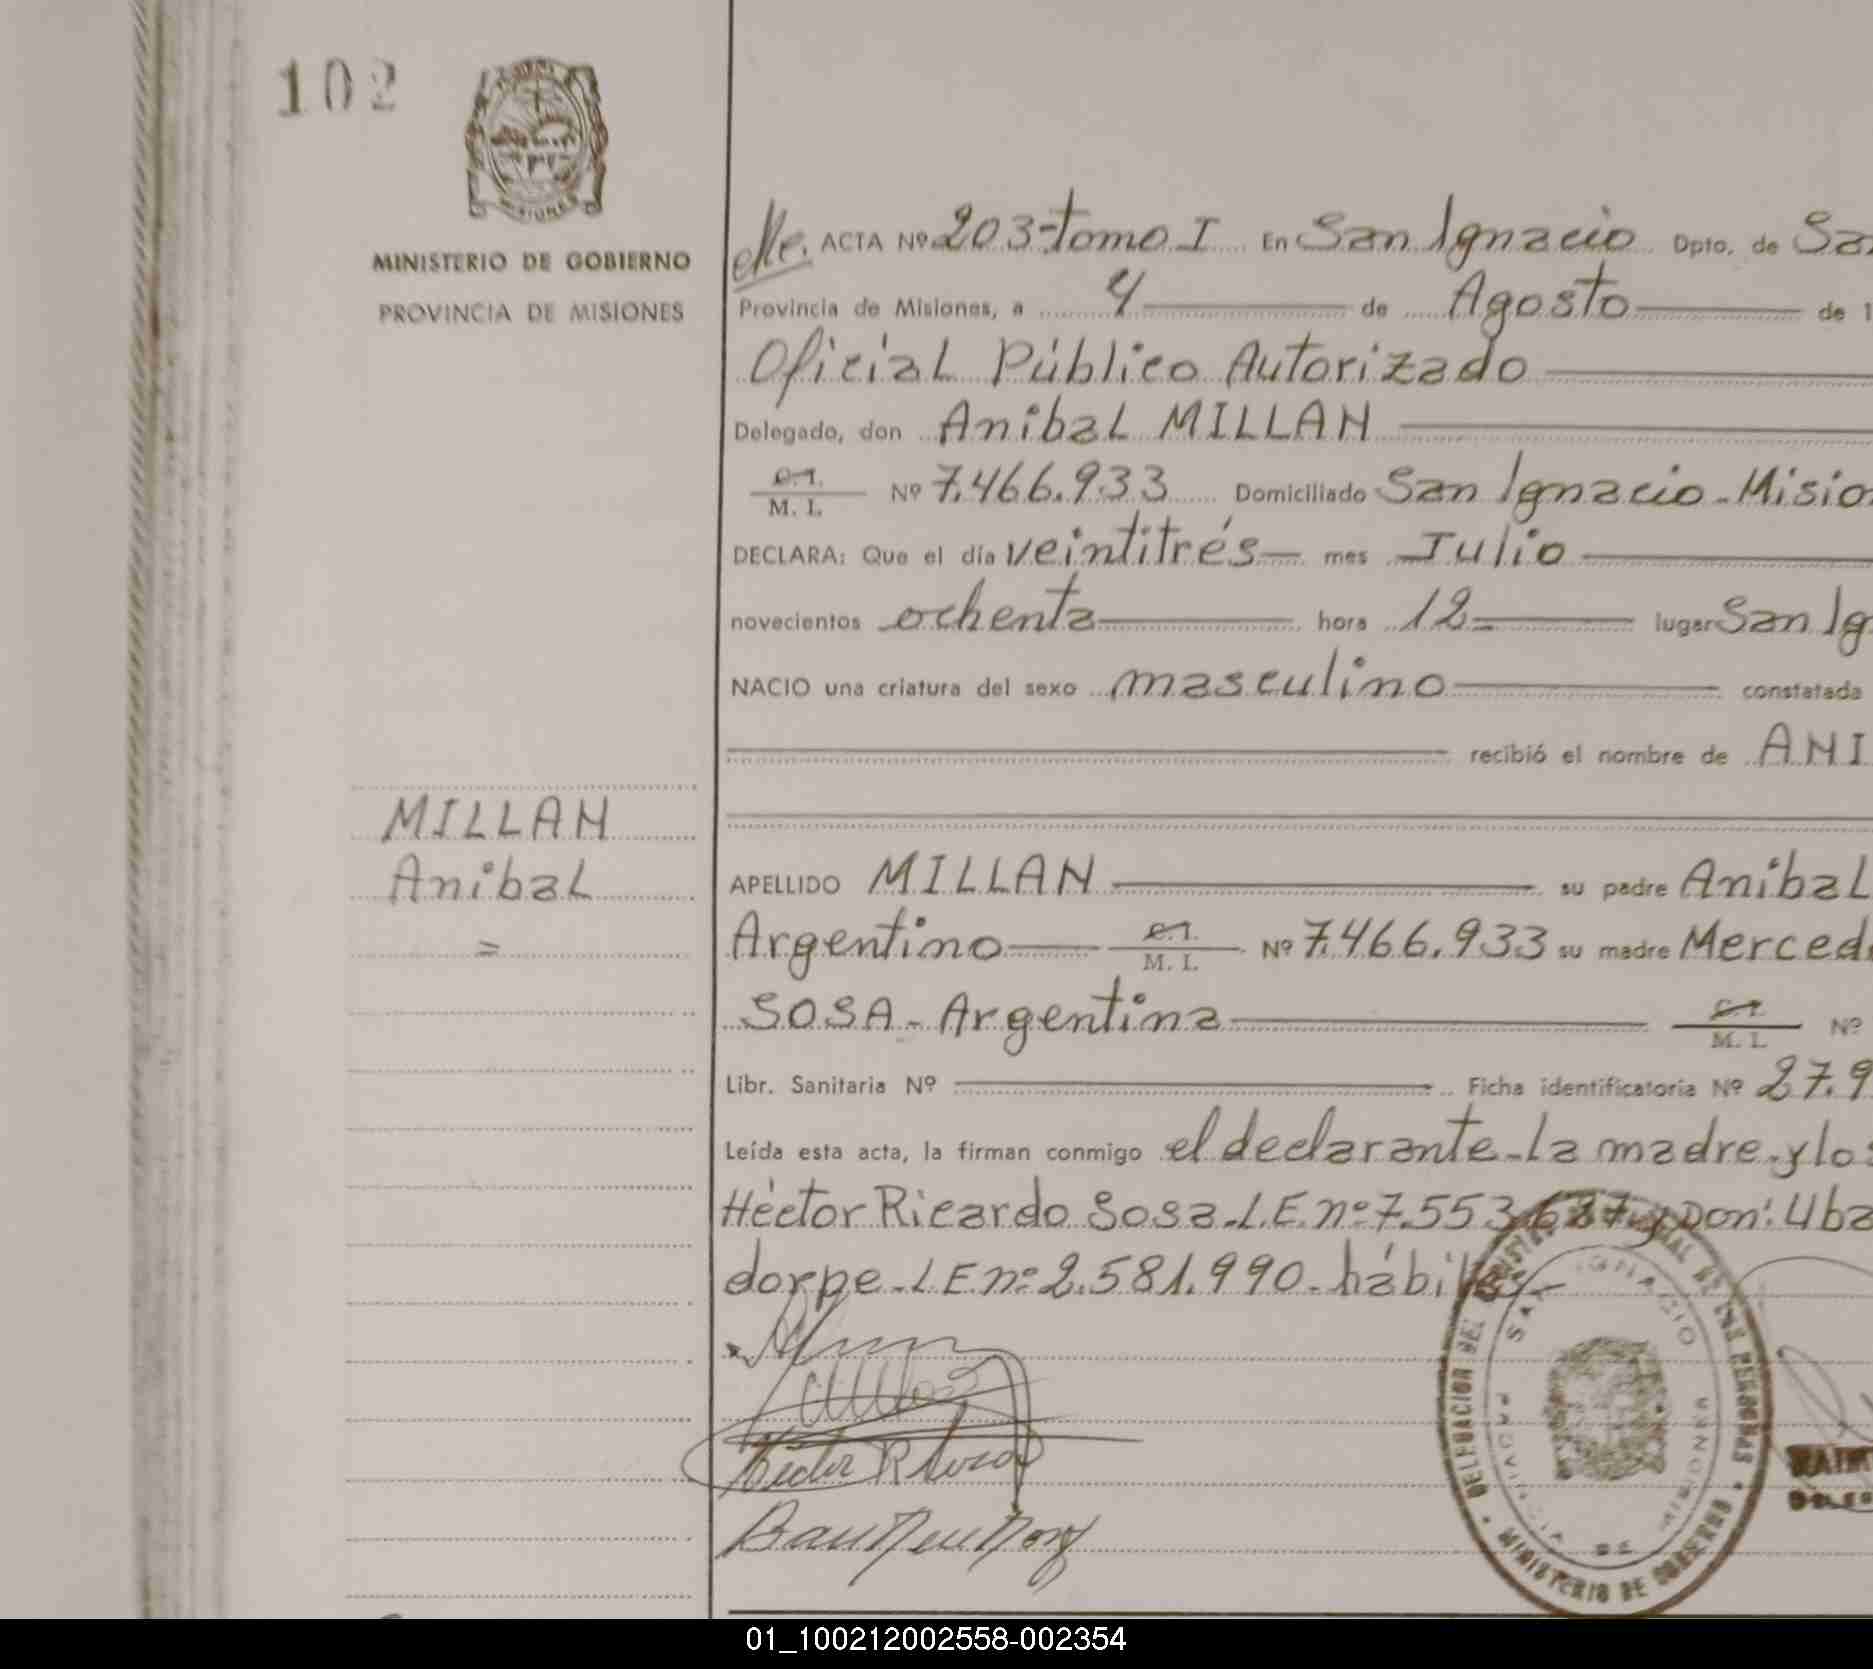 102
MISIONES
MINISTERIO DE GOBIERNO
PROVINCIA DE MISIONES
MILLAN
Anibal
=
ACTA Nº 203-tomo I En San Ignacio Dpto. de Sa
Provincia de Misiones, a 4 de Agosto de 1
Oficial Público Autorizado
Delegado, don Anibal MILLAN
C.I. M. I. Nº 7.466.933 Domiciliado San Ignacio-Misio
DECLARA: Que el día veintitrés mes Julio
novecientos ochenta hora 12= lugar San Ig
NACIO una criatura del sexo masculino constatada
recibió el nombre de ANI
APELLIDO MILLAN su padre Anibal
Argentino C.I. M. I. Nº 7.466.933 su madre Merced
SOSA-Argentina C.I. M. I. Nº
Libr. Sanitaria Nº Ficha identificatoria Nº 27.9
Leída esta acta, la firman conmigo el declarante-la madre-y los
Héctor Ricardo Sosa-L.E.nº7.553.687-y Don: Uba
dorpe-L E nº 2.581.990-hábiles-
Hector R Sosa
DELEGACION DEL REGISTRO DE LAS PERSONAS
SAN IGNACIO
PROVINCIA DE MISIONES
MINISTERIO DE GOBIERNO
01_100212002558-002354